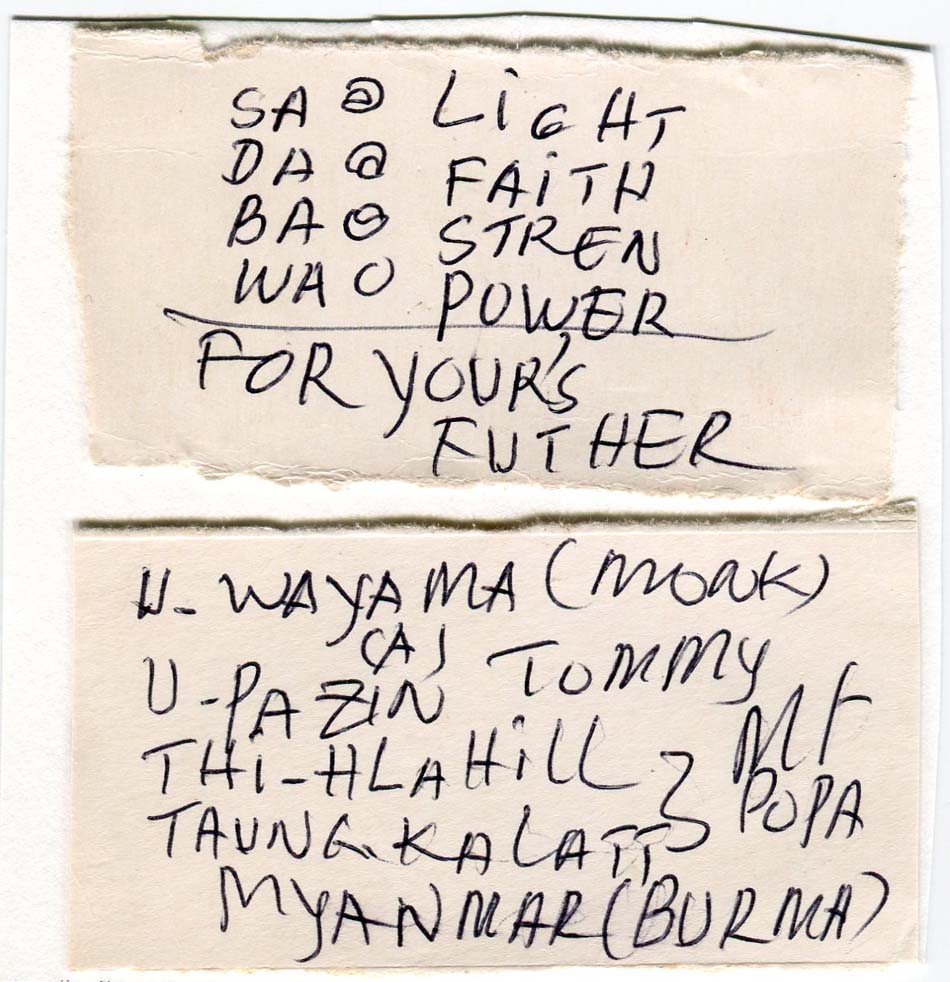 SA @ LiGHT
DA @ FAiTH
BA STREN
WA O POWER
FOR YOUR'S
FUTHER
U- WAYAMA (MONK)
(A)
U-PAZIN TOMMY
THi-HLA HiLL } MT
TAUNG.KALATT POPA
MYANMAR (BURMA)